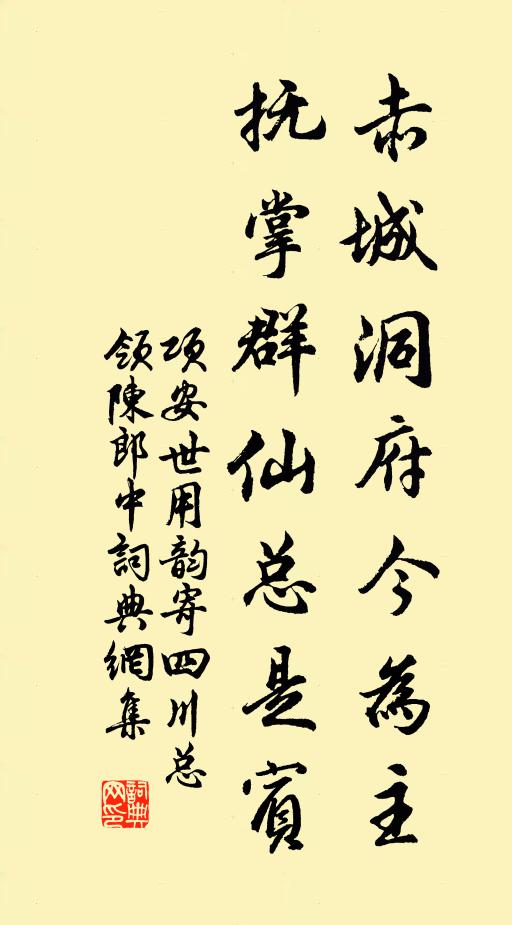 赤城洞府今為主
抚掌群仙总是賓
项安世用韵寄四川总
领陳郎中詞典網集
詞典网印